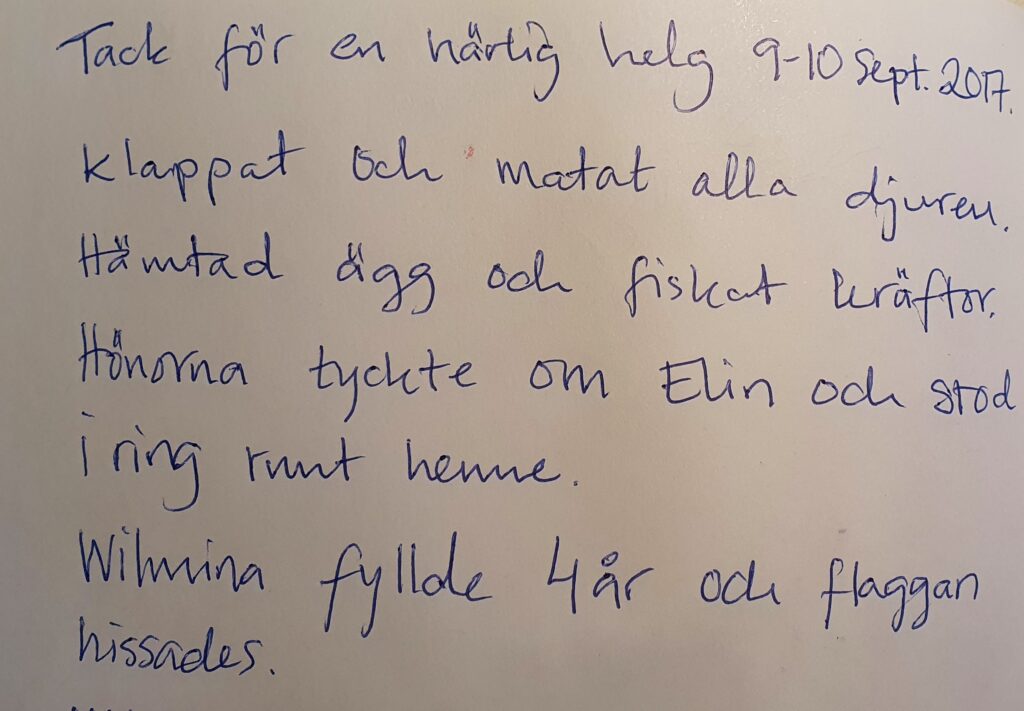 Tack för en härlig helg 9-10 Sept. 2017.
klappat och matat alla djuren.
Hämtad ägg och fiskat kräftor.
Hönorna tyckte om Elin och stod
i ring runt henne.
Wilmina fyllde 4 år och flaggan
hissades.